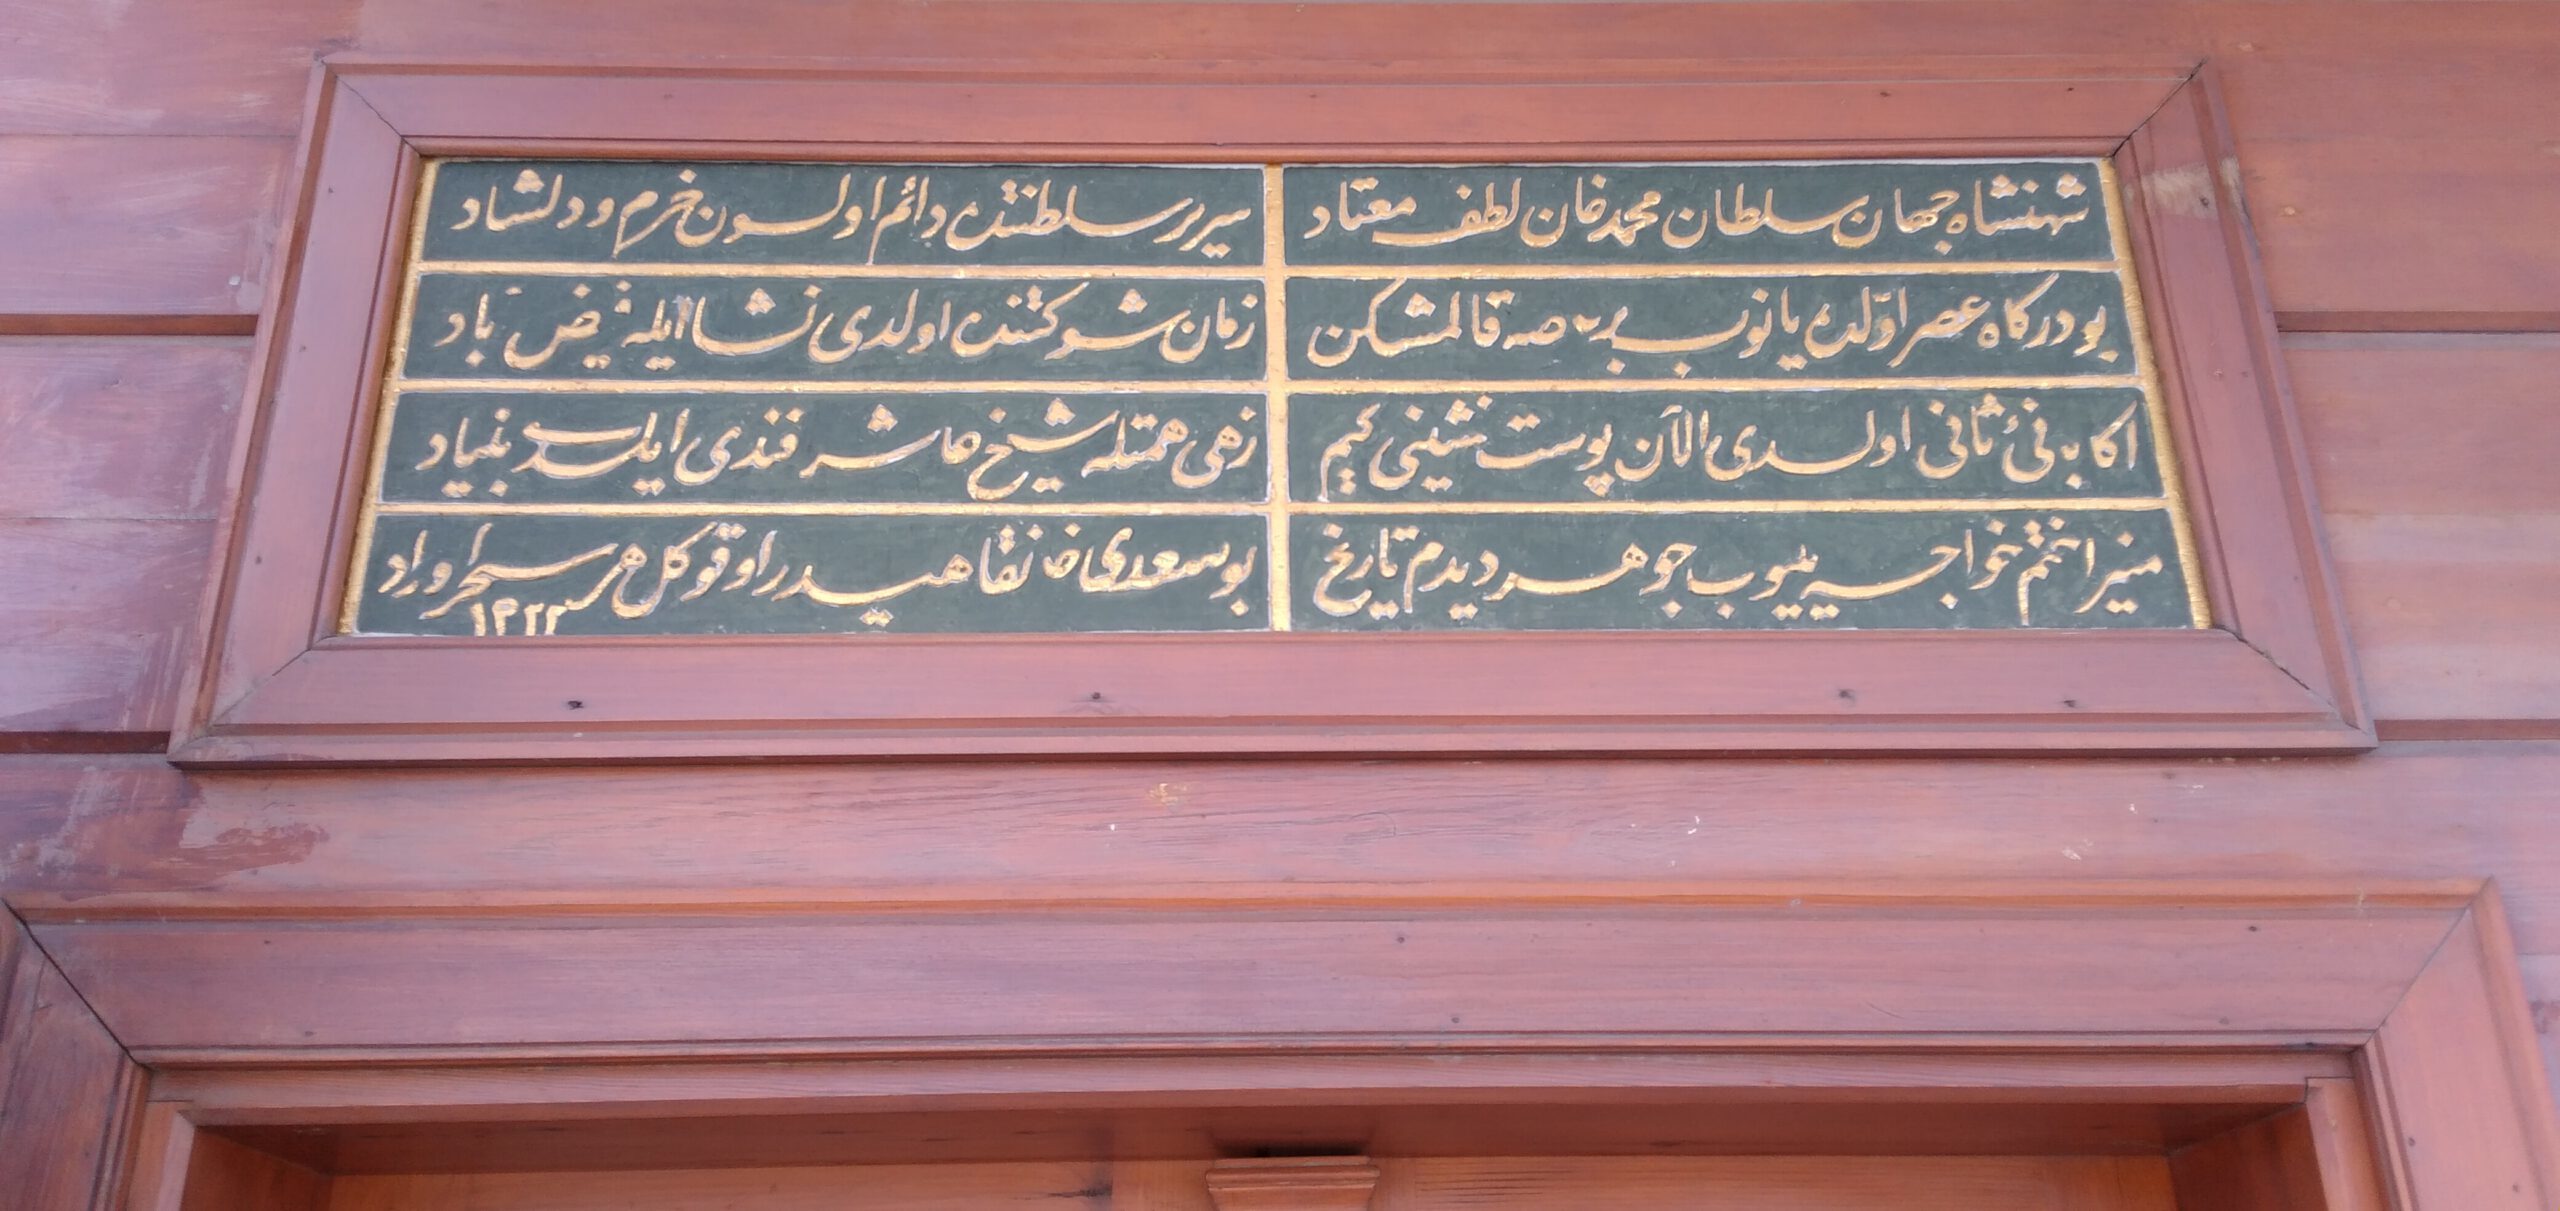 شهنشاه جهان سلطان محمد خان لطف معتاد
سرير سلطنتده دائم اولسون خرم و دلشاد
بو دركاه عصر اوّلده يانوب بر عرصه قالمشكن
زمان شوكتنده اولدى نشا ايله فيض باد
اكا بانئ ثانى اولدى الآن پوست نشينى كيم
زهى همتله شيخ عاشر فندى ايلدى بنياد
منير انختم خواجه ييوب جوهر ديدم تاريخ
بو سعدى خانقاهيدر اوقو كل هر سحر اوراد
١٢٢٢